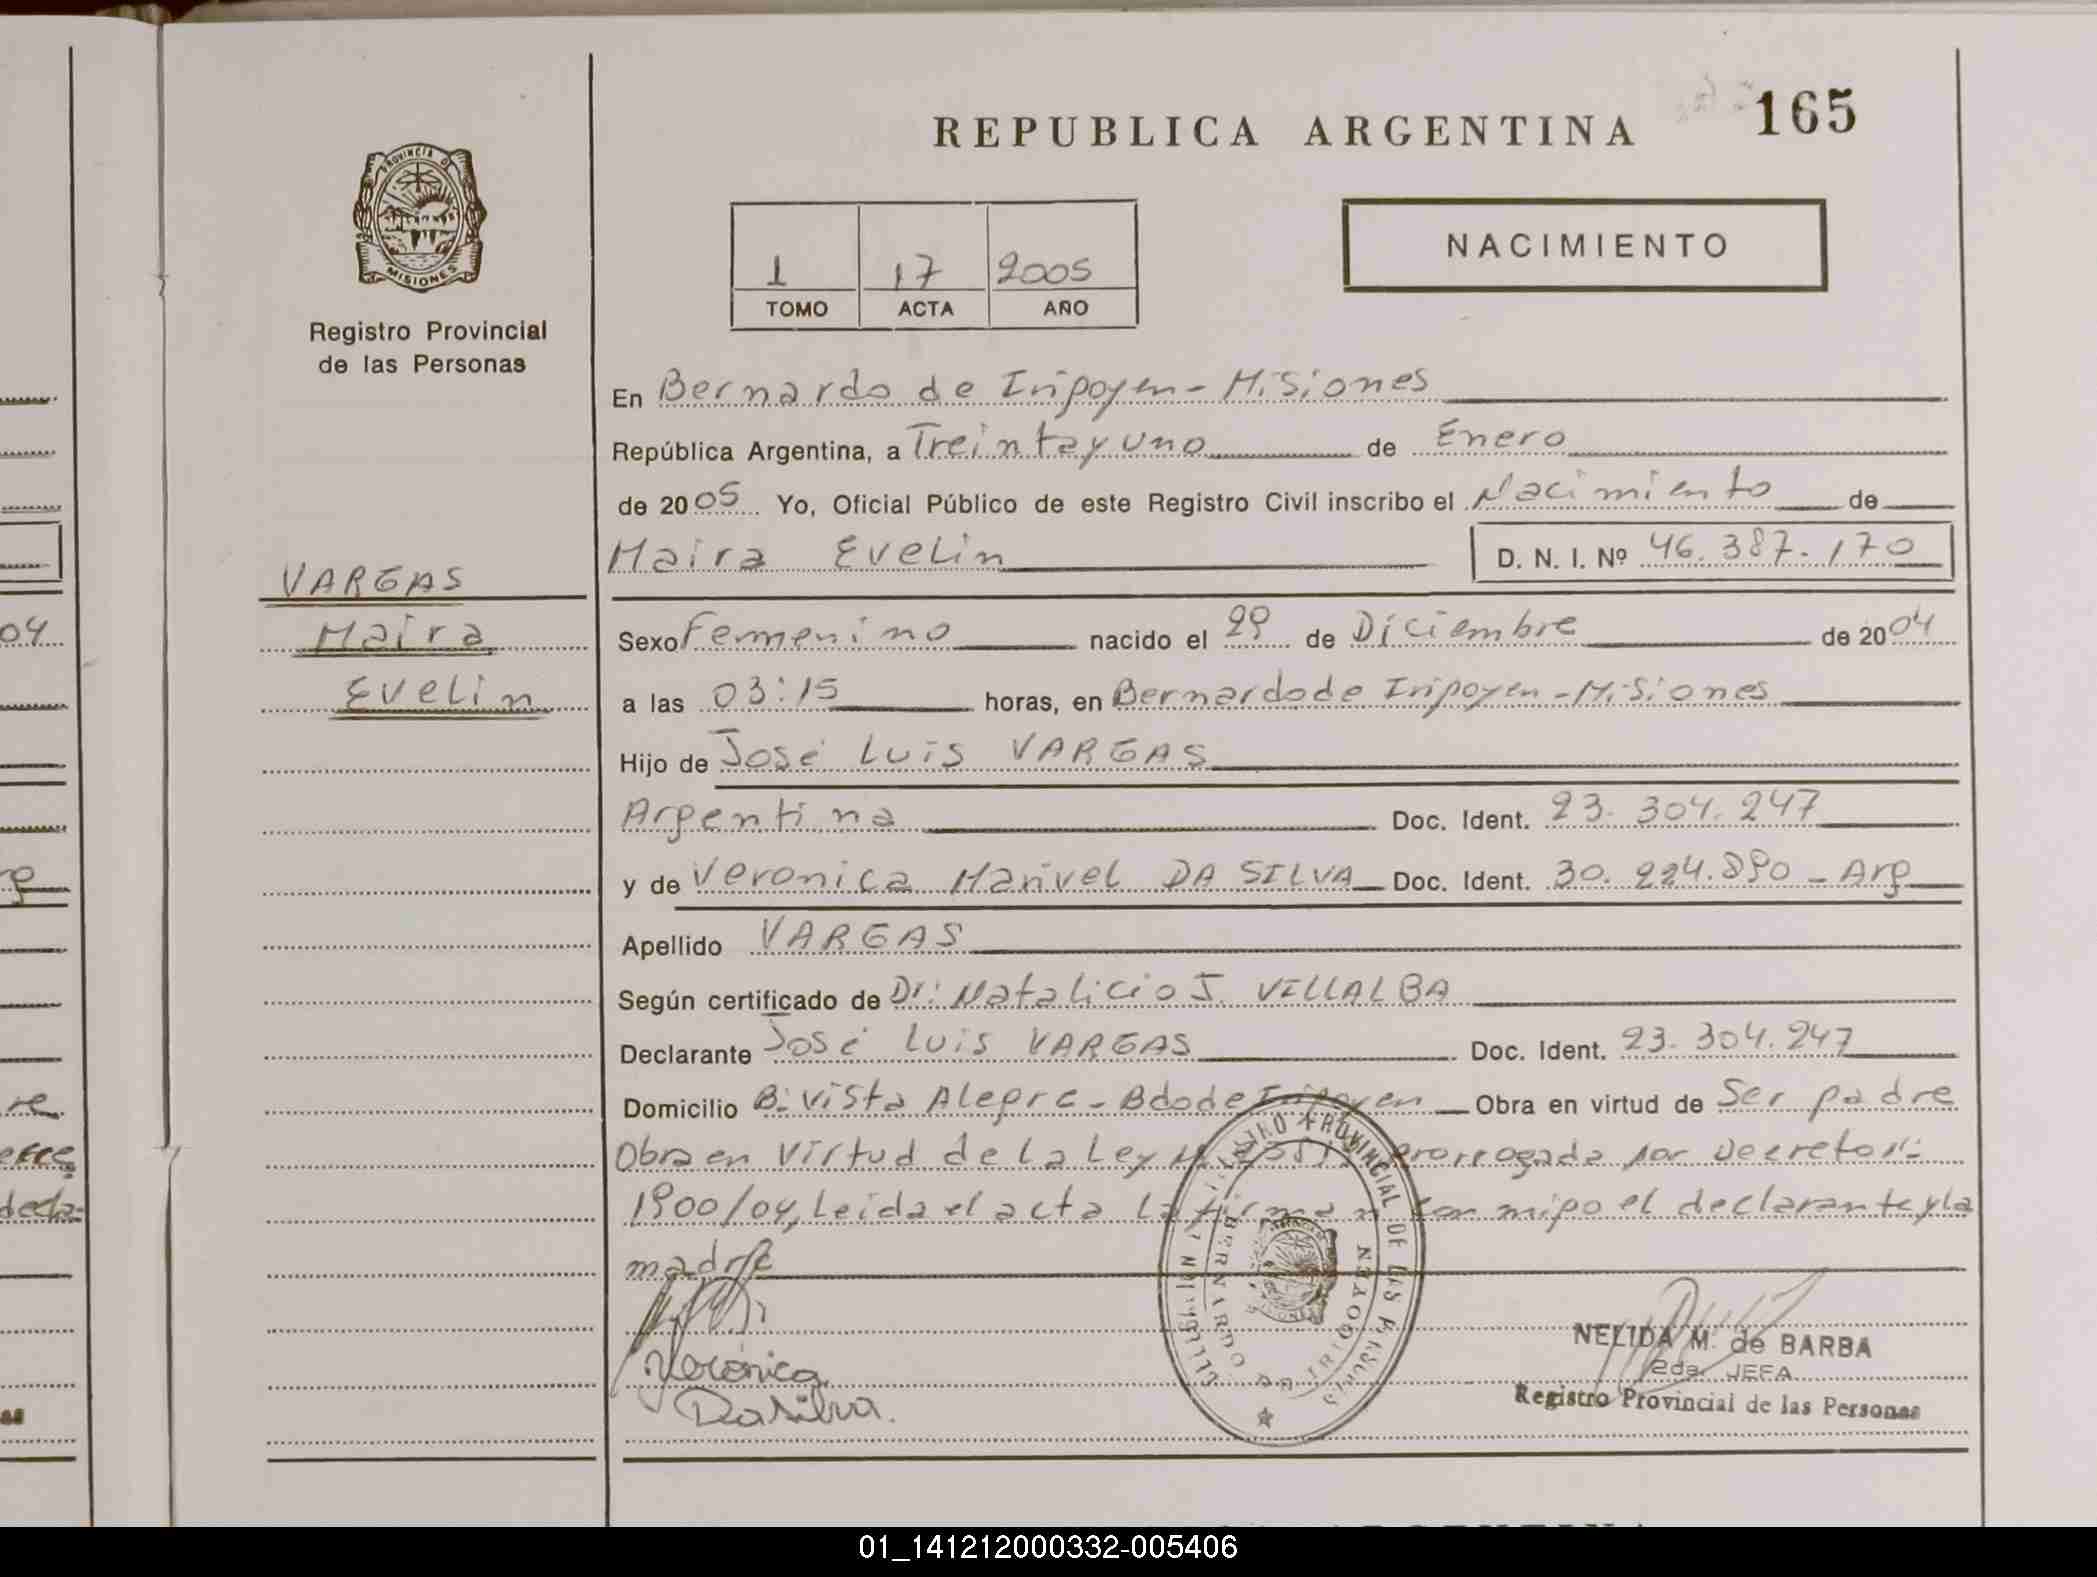 REPUBLICA ARGENTINA 165
PROVINCIA DE
MISIONES
Registro Provincial
de las Personas
1 17 2005
TOMO ACTA AÑO
NACIMIENTO
En Bernardo de Irigoyen - Misiones
República Argentina, a Treinta y uno de Enero
de 2005 Yo, Oficial Público de este Registro Civil inscribo el Nacimiento de
Maira Evelin D. N. I. Nº 46.387.170
VARGAS
Maira
Evelin
Sexo Femenino nacido el 29 de Diciembre de 2004
a las 03:15 horas, en Bernardo de Irigoyen - Misiones
Hijo de José Luis VARGAS
Argentina Doc. Ident. 23.304.247
y de Veronica Marivel DA SILVA Doc. Ident. 30.224.890 - Arg
Apellido VARGAS
Según certificado de Dr. Natalicio J. VILLALBA
Declarante José Luis VARGAS Doc. Ident. 23.304.247
Domicilio B: Vista Alegre - Bdo de Irigoyen Obra en virtud de Ser padre
Obra en virtud de la Ley prorrogada por Decreto n:
1900/04, Leída el acta la firman con migo el declarante y la
madre
Verónica
Da Silva.
REGISTRO PROVINCIAL DE LAS PERSONAS
BERNARDO DE IRIGOYEN
NELIDA M. de BARBA
2da. JEFA
Registro Provincial de las Personas
04
re
decla-
01_141212000332-005406